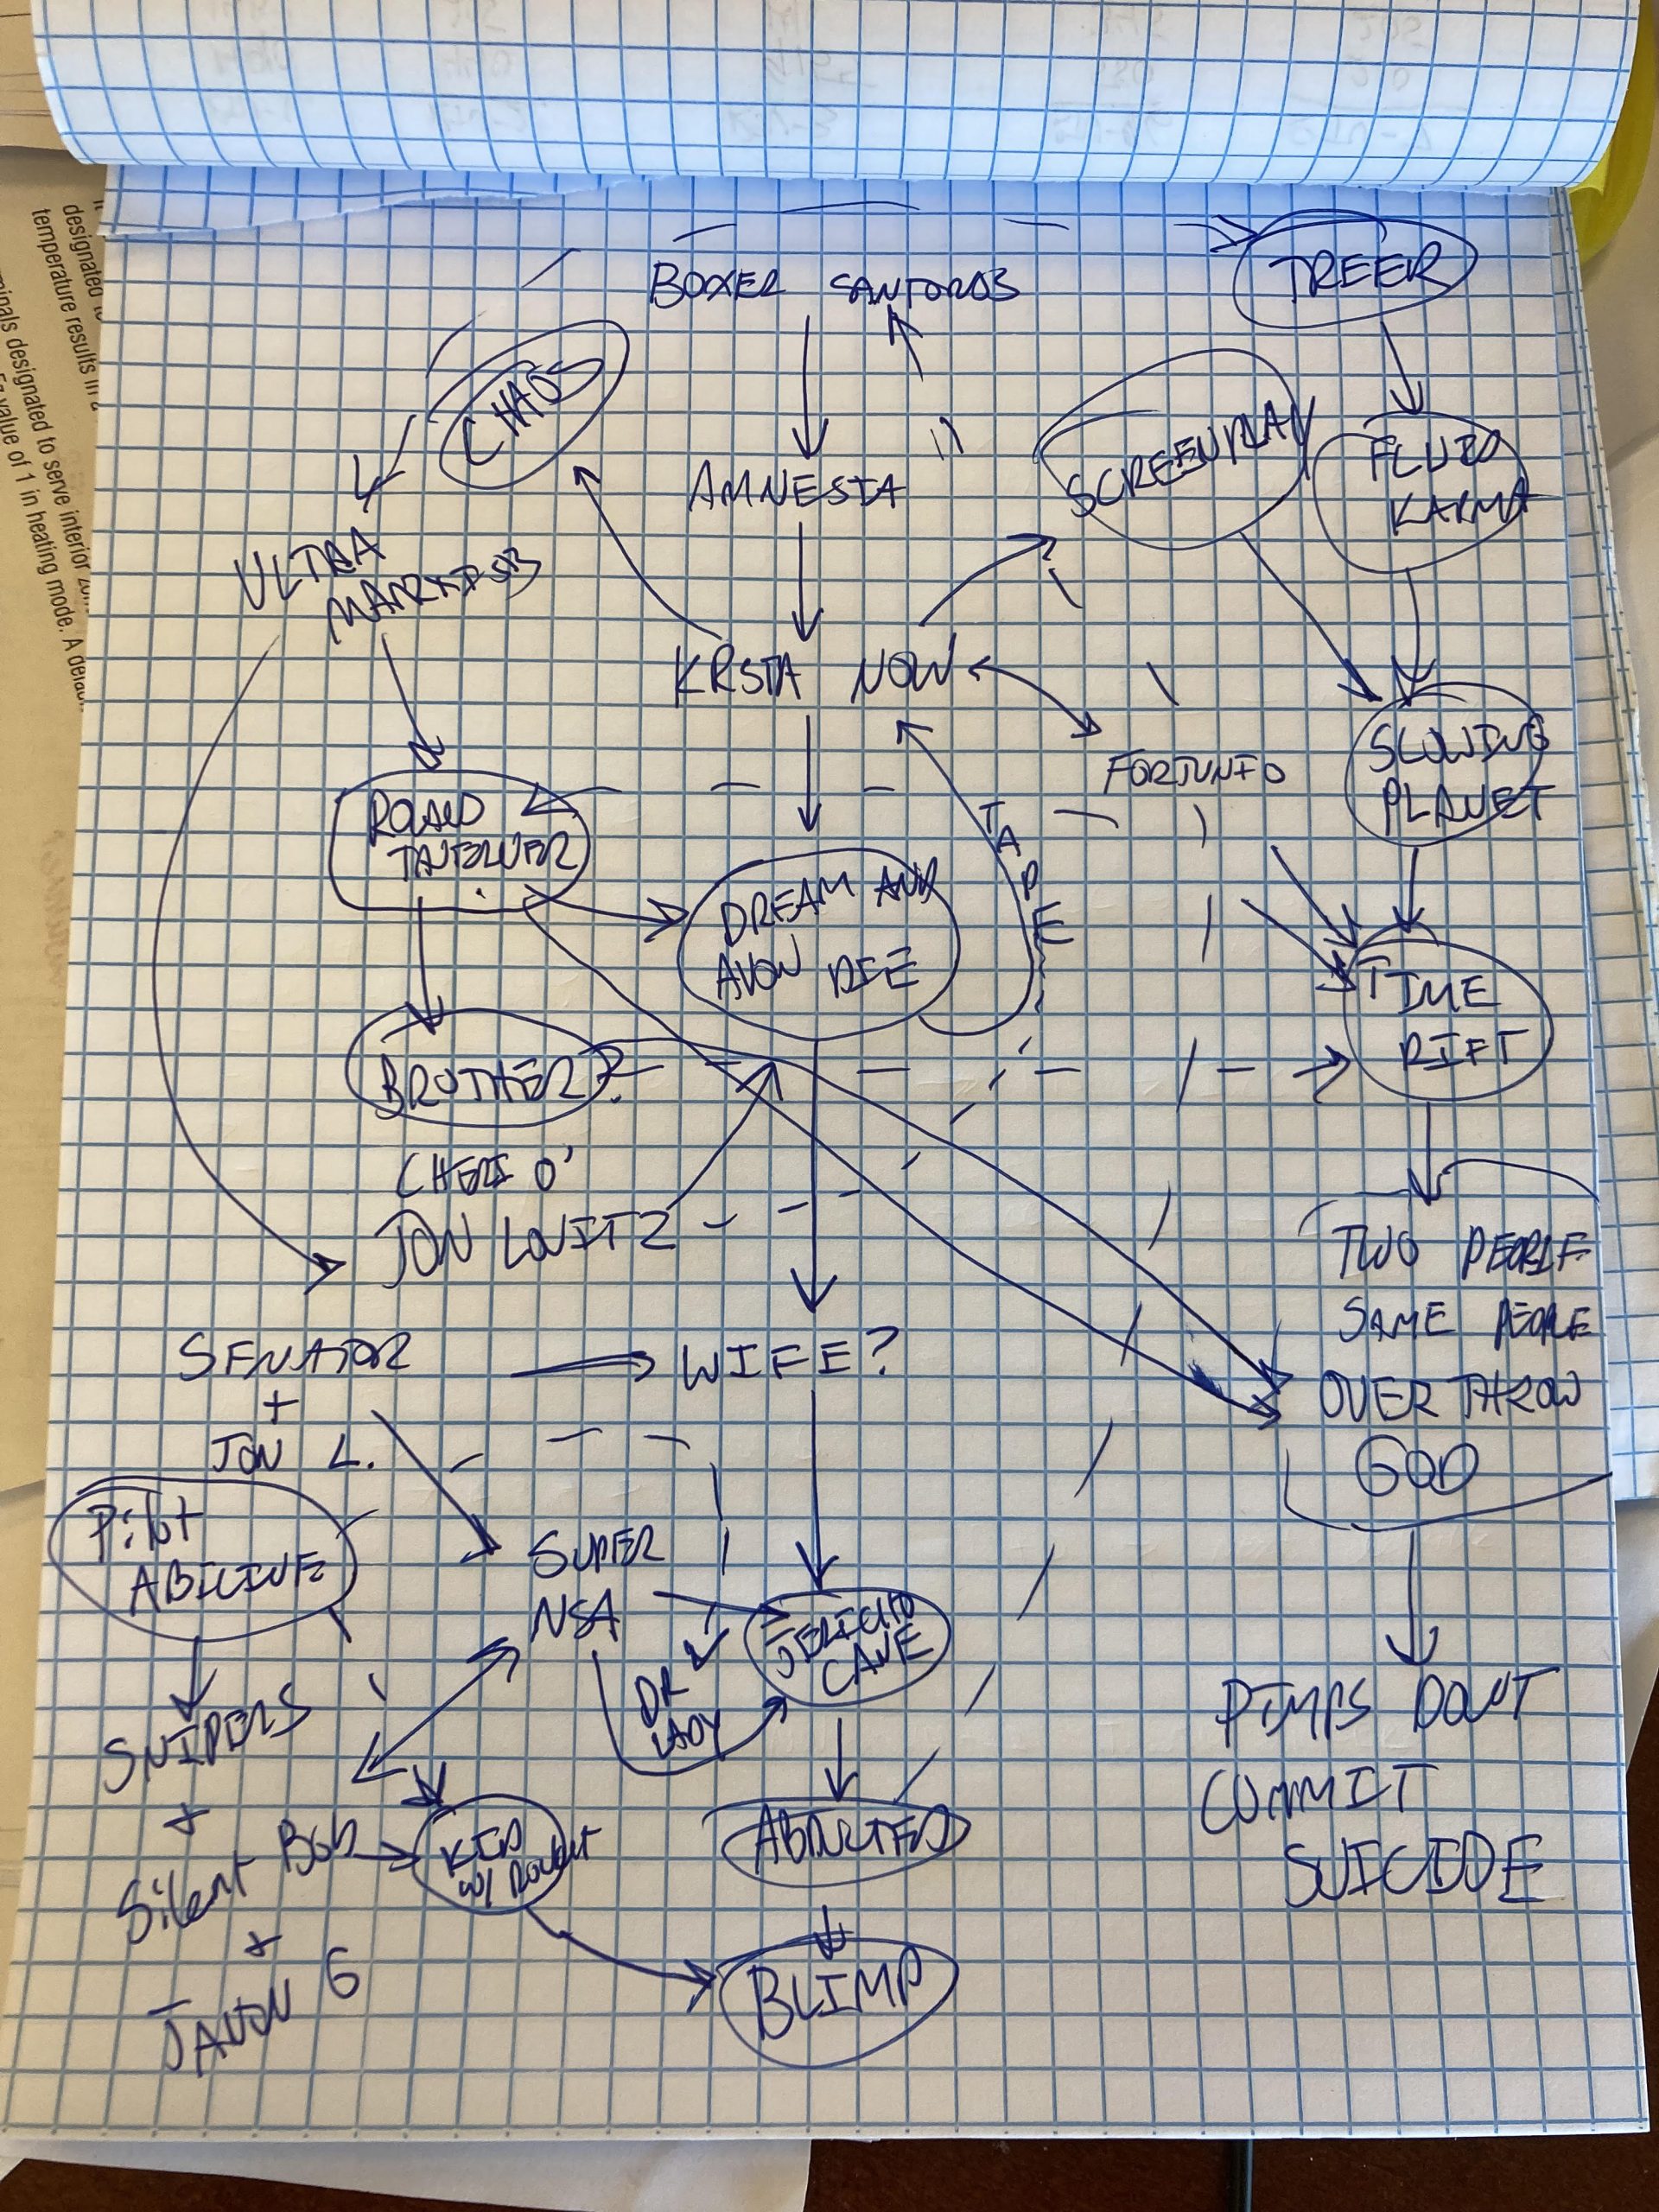 designated to
temperature results in a
minals designated to serve interior
value of 1 in heating mode. A
BOXER SANTOROS
TREER
CHAOS
AMNESIA
SCREENPLAY
FLUID
KARMA
ULTRA
MARXISB
KRSTA NOW
FORTUNIO
SLOWING
PLANET
ROLAND
TAVERNER
TAPE
DREAM AND
AVON DIE
TIME
RIFT
BROTHER?
CHERI O'
JON LOVITZ
TWO PEOPLE
SAME PEOPLE
OVER THROW
GOD
SENATOR
+
JON L.
WIFE?
Pilot
ABILINE
SUPER
NSA
JERICHO
CANE
DR
LADY
SNIPERS
+
Silent Bob
+
KID
W/ Rocket
ABDUCTED
PIMPS DONT
COMMIT
SUICIDE
BLIMP